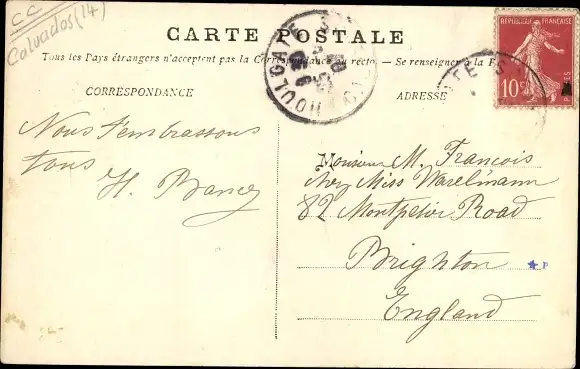 CC
Calvados (14)
CARTE POSTALE
Tous les Pays étrangers n'acceptent pas la Correspondance au recto. — Se renseigner à la P
RÉPUBLIQUE FRANÇAISE
10
POSTES
HOULGATE
CORRESPONDANCE
ADRESSE
Nous t'embrassons
tous
H.
Monsieur M. Francois
Miss
82 Montpelier Road
Brighton
P
England